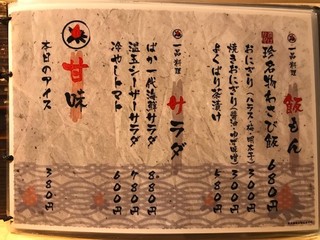 一品料理
飯もん
珍名物わさび飯 680円
おにぎり（ハラス・梅・明太子） 300円
焼きおにぎり（醤油・ゆず味噌） 300円
よくばり茶漬け 580円
一品料理
サラダ
ばか一代海鮮サラダ 880円
温玉シーザーサラダ 780円
冷やしトマト 600円
甘味
本日のアイス 380円